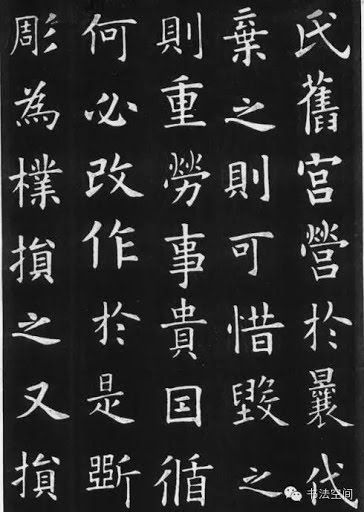 氏舊宮營於曩代
棄之則可惜毀之
則重勞事貴因循
何必改作於是斲
彫為樸損之又損
书法空间